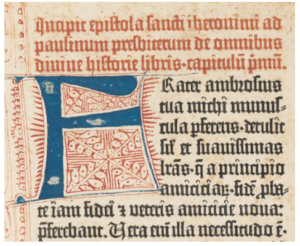 Incipit epistola sancti iheronimi ad
paulinum presbiterum de omnibus
divine historie libris. capitulū p̄mū.
Frater ambrosius
tua michi munus-
cula p̄ferens. detulit
sil̄ et suavissimas
lr̄as. q̄ a principio
amiciciaꝝ. fidē p̄ba-
te iam fidei ⁊ veteris amicicie nova:
p̄ferebant. Vera em̄ illa necessitudo ē.